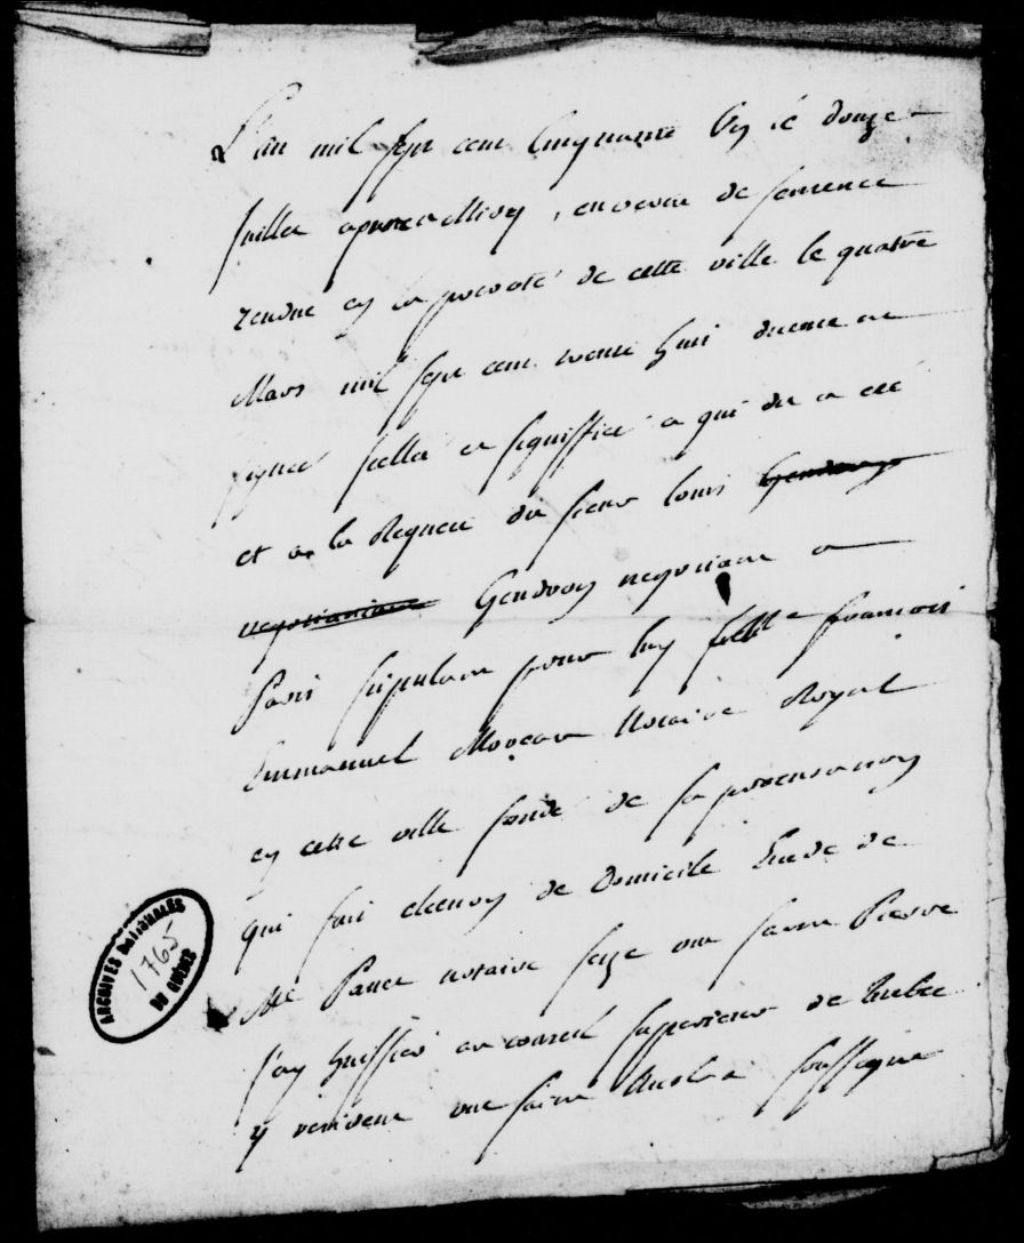 L'an mil sept cent cinquante un le douze
Juillet apres Midy, en vertu de sentence
rendue en la prevoté de cette ville le quatre
Mars mil sept cent trente huit duement
signeé scellé et signiffieé a qui du a eté
et a la Requete du sieur louis Gendron
negotiant Gendron negotiant a
Paris stipulant pour luy francois
Emmanuel Moreau Notaire Royal
en cette ville fondé de sa procuration
qui fait election de Domicile Etude de
Me Panet notaire size rue saint Pierre
J'ay huissier au conseil superieur de Quebec
y resident rue saint soussigné
ARCHIVES NATIONALES
1765
DU QUÉBEC